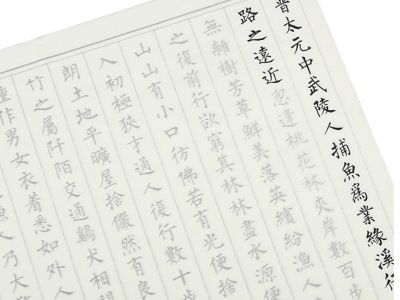 晉太元中武陵人捕魚爲業緣溪行
路之遠近忽逢桃花林夾岸數百步
無雜樹芳草鮮美落英繽紛漁人
之復前行欲窮其林林盡水源便
山山有小口彷佛若有光便捨
入初極狹才通人復行數十步
朗土地平曠屋捨儼然有良
竹之屬阡陌交通鷄犬相
種作男女衣着悉如外人
人乃大